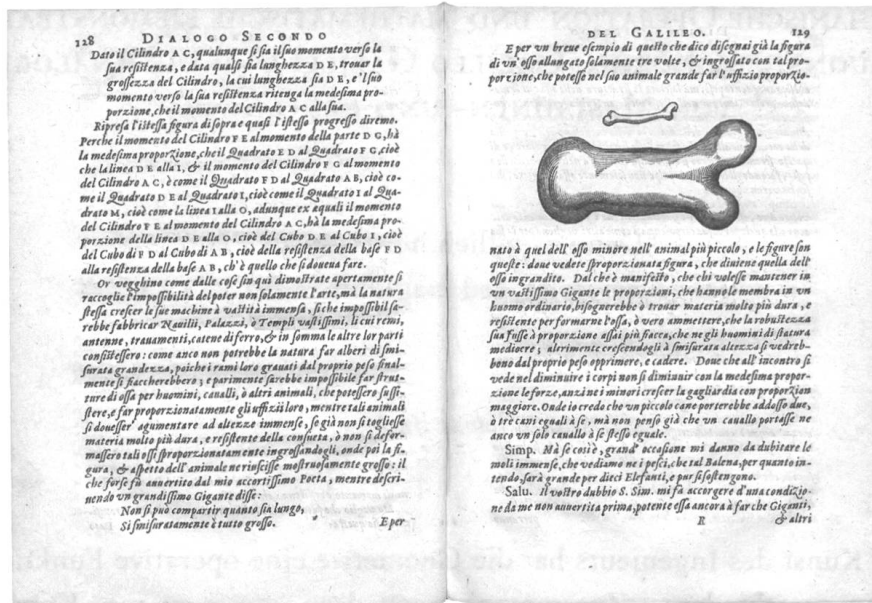 128 DIALOGO SECONDO
Dato il Cilindro A C, qualunque si sia il suo momento verso la
sua resistenza, e data qualsi sia lunghezza D E, trouar la
grossezza del Cilindro, la cui lunghezza sia D E, e'l suo
momento verso la sua resistenza ritenga la medesima pro-
porzione, che il momento del Cilindro A C alla sua.
Ripresa l'istessa figura di sopra e quasi l'istesso progresso diremo.
Perche il momento del Cilindro F E al momento della parte D G, hà
la medesima proporzione, che il Quadrato E D al Quadrato F G, cioè
che la linea D E alla I, & il momento del Cilindro F G al momento
del Cilindro A C, è come il Quadrato F D al Quadrato A B, cioè co-
me il Quadrato D E al Quadrato I, cioè come il Quadrato I al Qua-
drato M, cioè come la linea I alla O, adunque ex æquali il momento
del Cilindro F E al momento del Cilindro A C, hà la medesima pro-
porzione della linea D E alla O, cioè del Cubo D E al Cubo I, cioè
del Cubo di F D al Cubo di A B, cioè della resistenza della base F D
alla resistenza della base A B, ch'è quello che si doueua fare.
Or vegghino come dalle cose sin quì dimostrate apertamente si
raccoglie l'impossibilità del poter non solamente l'arte, mà la natura
stessa crescer le sue machine à vastità immensa, sì che impossibil sa-
rebbe fabbricar Nauilii, Palazzi, ò Templi vastissimi, li cui remi,
antenne, trauamenti, catene di ferro, & in somma le altre lor parti
consistessero: come anco non potrebbe la natura far alberi di smi-
surata grandezza, poiche i rami loro grauati dal proprio peso final-
mente si fiaccherebbero; e parimente sarebbe impossibile far strut-
ture di ossa per huomini, caualli, ò altri animali, che potessero sussi-
stere, e far proporzionatamente gli uffizii loro, mentre tali animali
si douesser' agumentare ad altezze immense, se già non si togliesse
materia molto più dura, e resistente della consueta, ò non si defor-
massero tali ossi sproporzionatamente ingrossandogli, onde poi la fi-
gura, & aspetto dell'animale ne riuscisse mostruosamente grosso: il
che forse fù auuertito dal mio accortissimo Poeta, mentre descri-
uendo vn grandissimo Gigante disse:
Non si può compartir quanto sia lungo,
Sì smisuratamente è tutto grosso.
E per
DEL GALILEO. 129
E per vn breue esempio di questo che dico disegnai già la figura
di vn'osso allungato solamente tre volte, & ingrossato con tal pro-
porzione, che potesse nel suo animale grande far l'uffizio proporzio-
nato à quel dell'osso minore nell'animal più piccolo, e le figure son
queste: doue vedete sproporzionata figura, che diuiene quella dell'
osso ingrandito. Dal che è manifesto, che chi volesse mantener in
vn vastissimo Gigante le proporzioni, che hanno le membra in vn
huomo ordinario, bisognerebbe ò trouar materia molto più dura, e
resistente per formarne l'ossa, ò vero ammettere, che la robustezza
sua fusse à proporzione assai più fiacca, che ne gli huomini di statura
mediocre; altrimente crescendogli à smisurata altezza si vedreb-
bono dal proprio peso opprimere, e cadere. Doue che all'incontro si
vede nel diminuire i corpi non si diminuir con la medesima propor-
zione le forze, anzi ne i minori crescer la gagliardia con proporzion
maggiore. Onde io credo che vn piccolo cane porterebbe addosso due,
ò tre cani eguali à se, mà non penso già che vn cauallo portasse ne
anco vn solo cauallo à se stesso eguale.
Simp. Mà se così è, grand'occasione mi danno da dubitare le
moli immense, che vediamo ne i pesci, che tal Balena, per quanto in-
tendo, sarà grande per dieci Elefanti, e pur si sostengono.
Salu. Il vostro dubbio S. Sim. mi fà accorgere d'una condizio-
ne da me non auuertita prima, potente essa ancora à far che Giganti,
R & altri